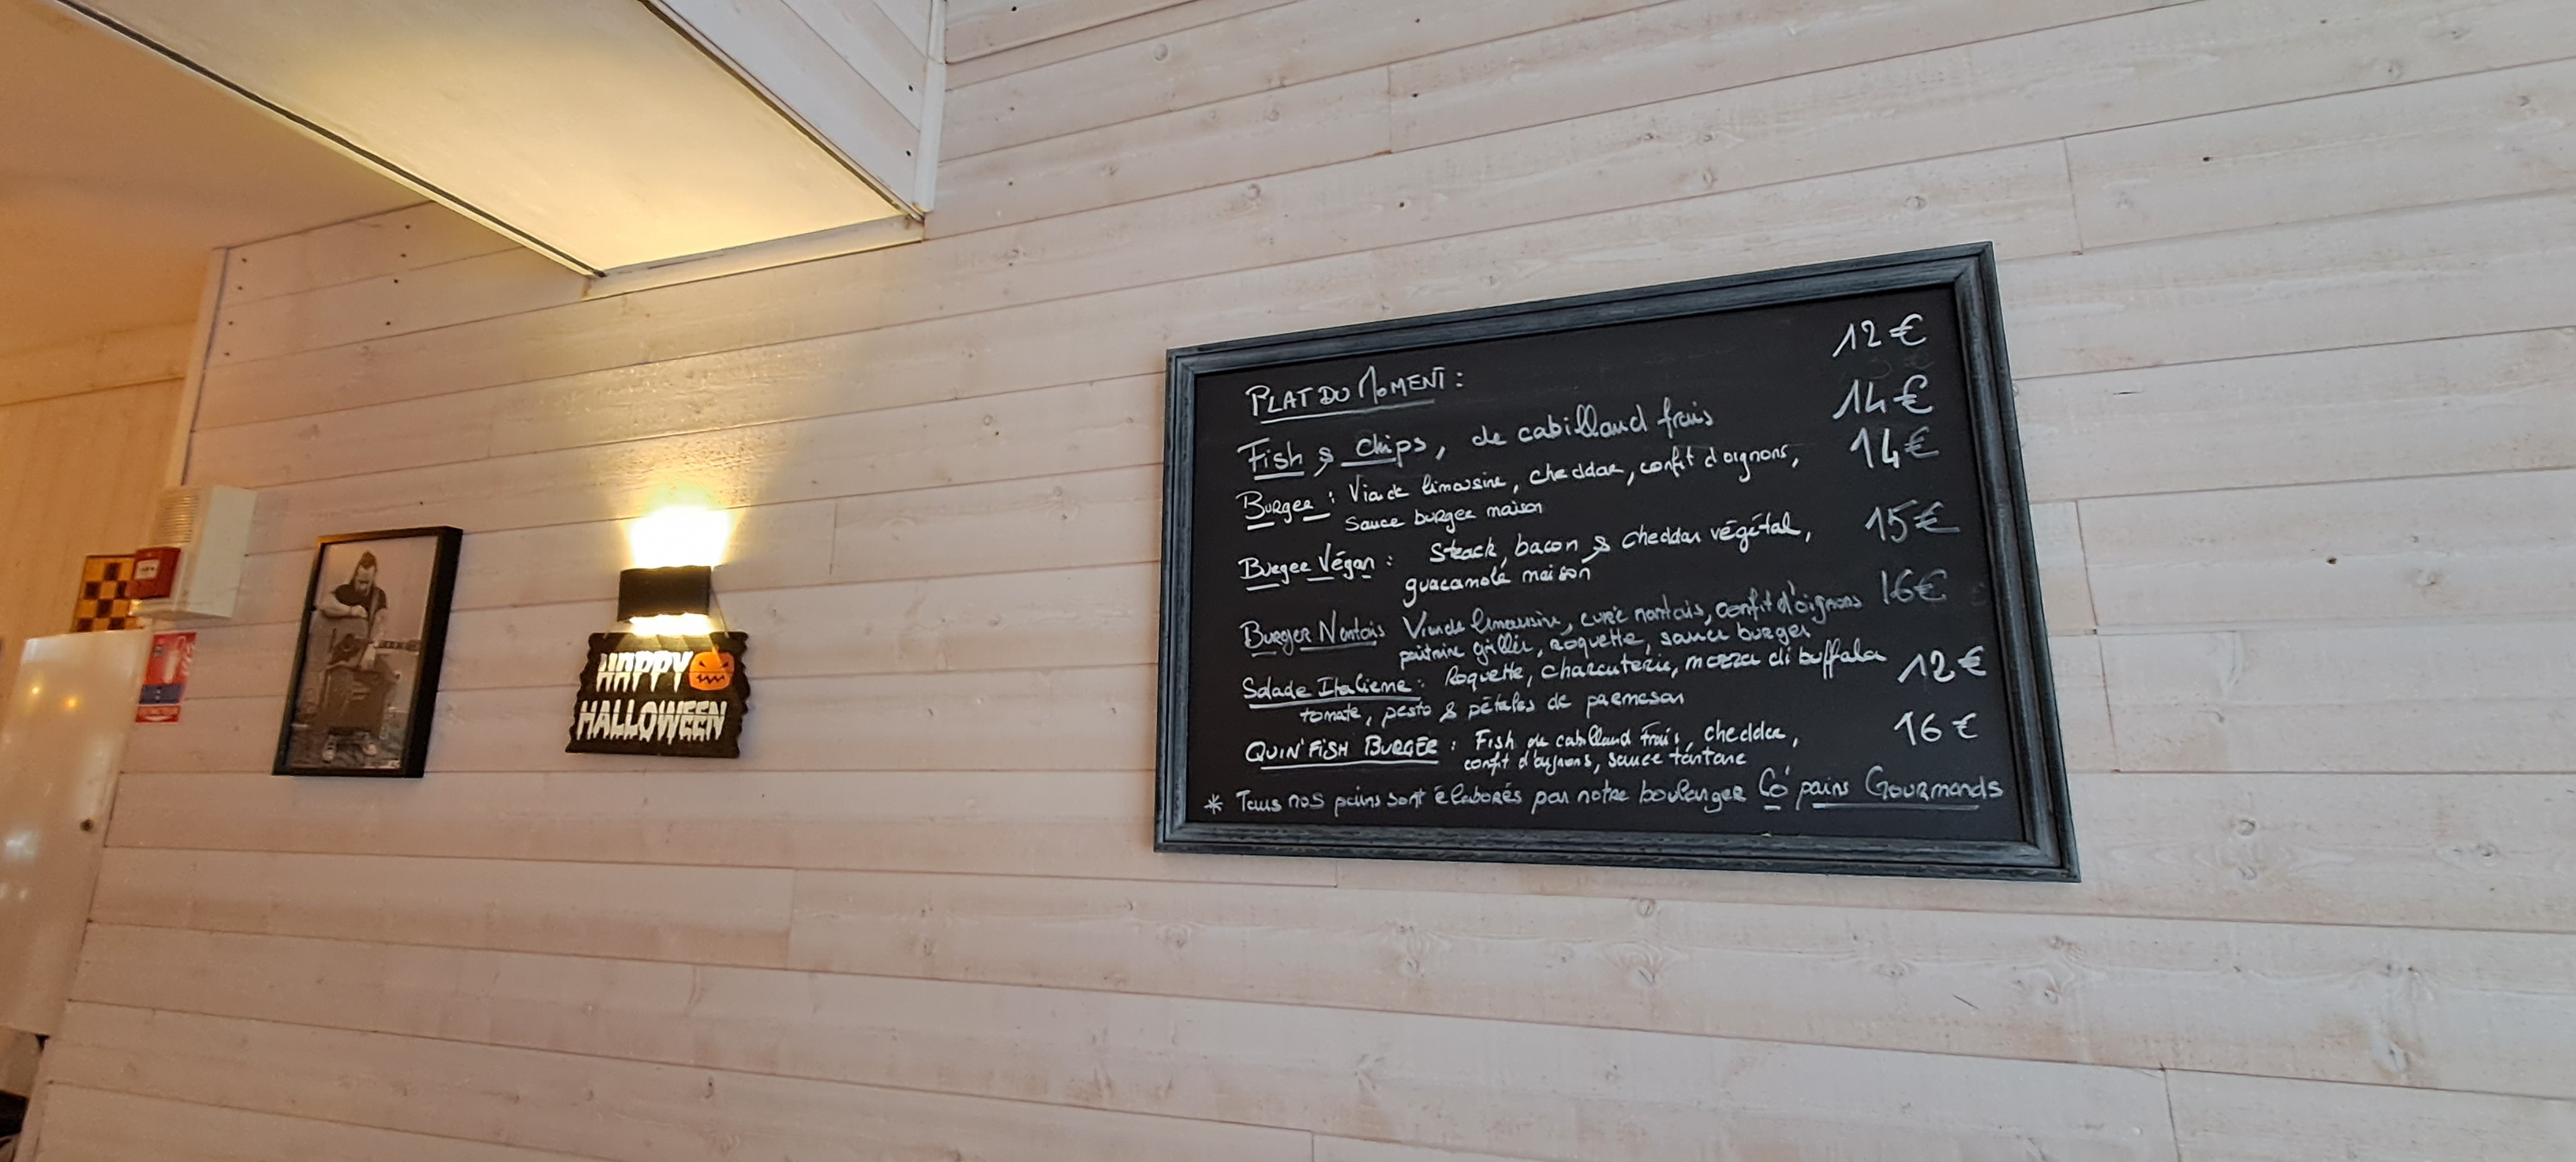 HAPPY
HALLOWEEN
PLAT DU MOMENT : 12€
Fish & chips, de cabillaud frais 14€
Burger : Viande limousine, cheddar, confit d'oignons, 14€
sauce burger maison
Burger Végan : Steack, bacon & cheddar végétal, 15€
guacamolé maison
Burger Nantais Viande limousine, curé nantais, confit d'oignons 16€
poitrine grillée, roquette, sauce burger
Salade Italienne : Roquette, charcuterie, mozza di buffala 12€
tomate, pesto & pétales de parmesan
QUIN'FISH BURGER : Fish de cabillaud frais, cheddar, 16€
confit d'oignons, sauce tartare
* Tous nos pains sont élaborés par notre boulanger Cô pains Gourmands